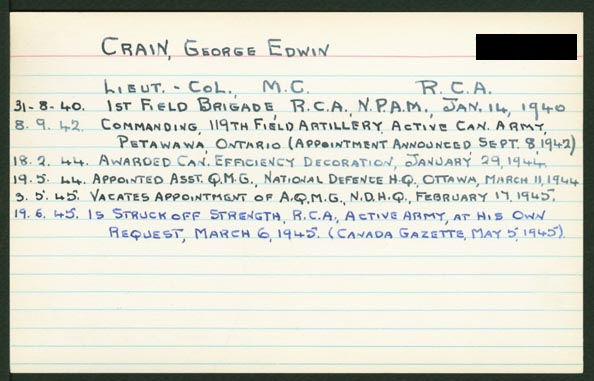 CRAIN, GEORGE EDWIN
LIEUT. - COL., M.C. R.C.A.
31-8-40. 1ST FIELD BRIGADE, R.C.A., N.P.A.M., JAN. 14, 1940
8.9.42. COMMANDING, 119TH FIELD ARTILLERY, ACTIVE CAN. ARMY,
PETAWAWA, ONTARIO (APPOINTMENT ANNOUNCED, SEPT. 8, 1942)
18.2.44. AWARDED CAN. EFFICIENCY DECORATION, JANUARY 29, 1944.
19.5.44. APPOINTED ASST. Q.M.G., NATIONAL DEFENCE H.Q., OTTAWA, MARCH 11, 1944
3.5.45. VACATES APPOINTMENT OF A.Q.M.G., N.D.H.Q., FEBRUARY 17, 1945.
19.6.45. IS STRUCK OFF STRENGTH, R.C.A., ACTIVE ARMY, AT HIS OWN
REQUEST, MARCH 6, 1945. (CANADA GAZETTE, MAY 5, 1945).